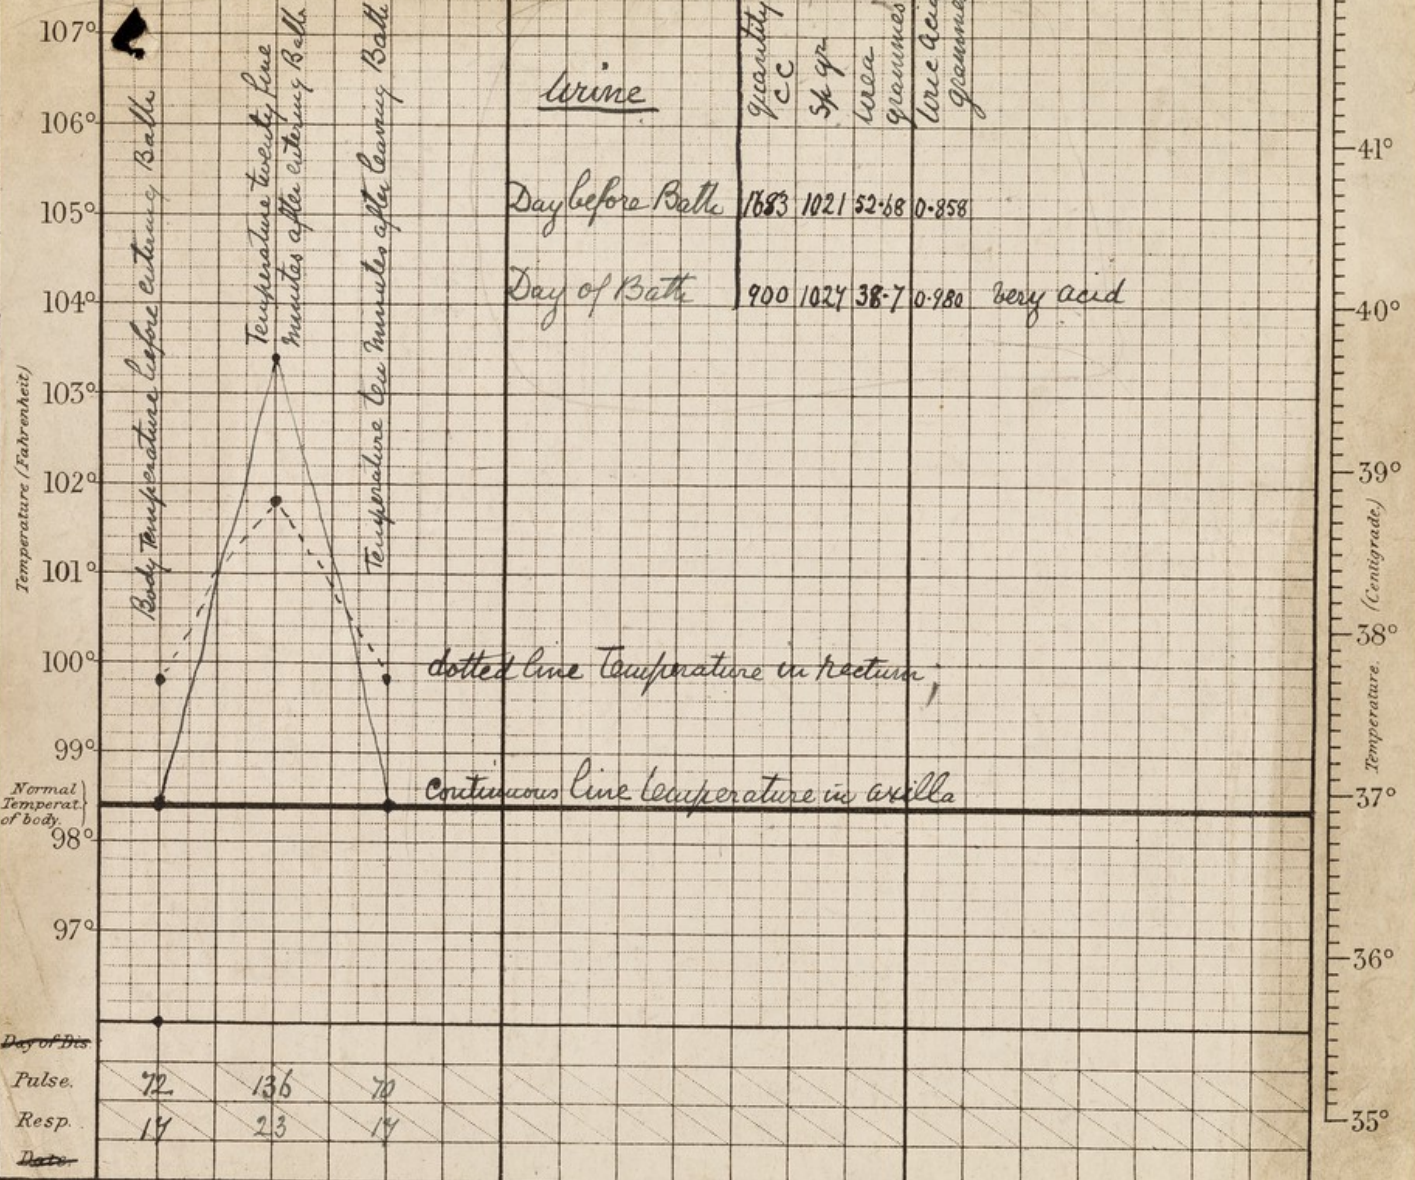 107°
106°
105°
104°
103°
102°
101°
100°
99°
98°
97°
Temperature (Fahrenheit)
Normal
Temperat.
of body.
Body Temperature before entering Bath
Temperature twenty five
minutes after entering Bath
Temperature ten minutes after leaving Bath
Urine
quantity
CC
Sp gr
Urea
grammes
Uric Acid
grammes
Day before Bath 1683 1021 52.68 0.858
Day of Bath 900 1027 38.7 0.980 very acid
dotted line Temperature in rectum,
Continuous line temperature in axilla
41°
40°
39°
38°
37°
36°
35°
Temperature. (Centigrade)
Day of Dis.
Pulse. 72 136 70
Resp. 17 23 17
Date.